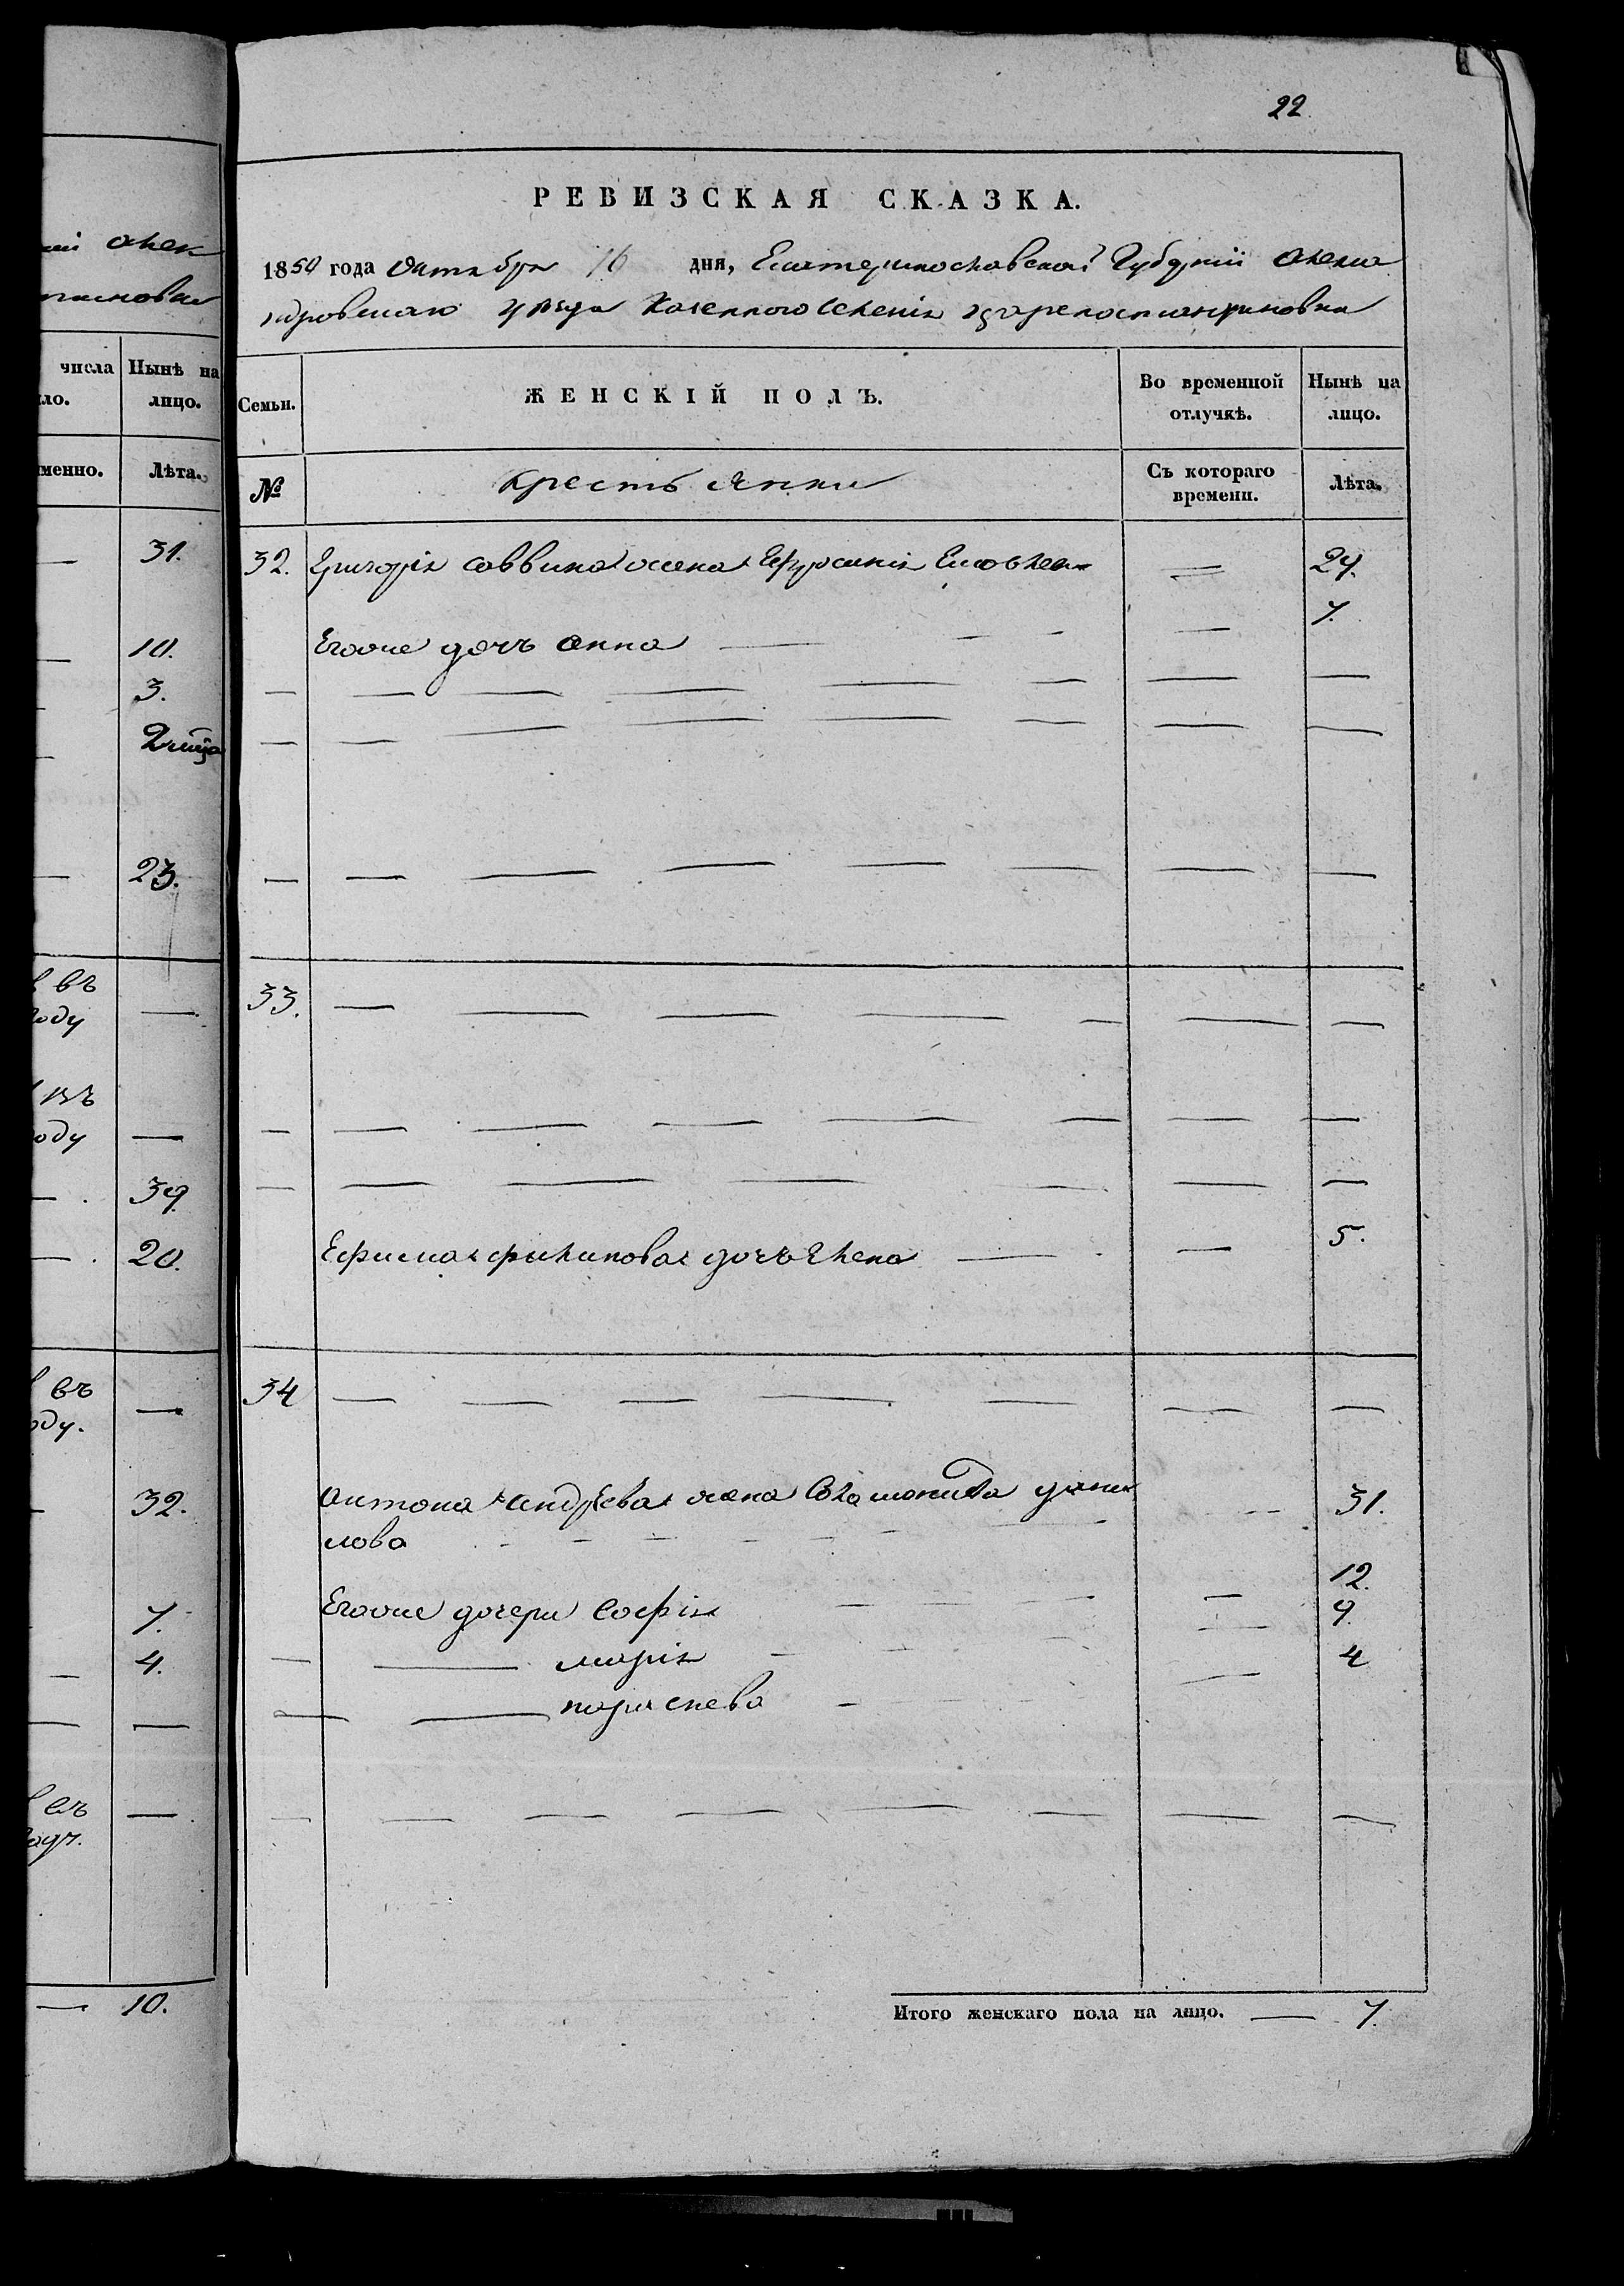 22
РЕВИЗСКАЯ СКАЗКА.
1850 года Октября 16 дня, Екатеринославской Губернии Алекса
ндровскаго уезда Казенного Селенія Цареконстантиновки
Семьи. ЖЕНСКІЙ ПОЛЪ. Во временной отлучкѣ. Нынѣ на лицо.
№ Крестьянки Съ котораго времени. Лѣта.
32. Григорія Саввина жена Ефросинія — 24.
Егоже дочъ Анна — 7.
33.
Ефима Филипова дочъ Елена — 5.
34
Антона Андрѣева жена Соломонида Дани
лова 31.
Егоже дочери Софія — 12.
Марія — 9.
Параскева — 4
Итого женскаго пола на лицо. — 7.
числа Нынѣ на
ло. лицо.
менно. Лѣта.
31.
10.
3.
23.
въ
оду
въ
оду
39
20.
въ
оду.
32.
7.
4.
въ
10.